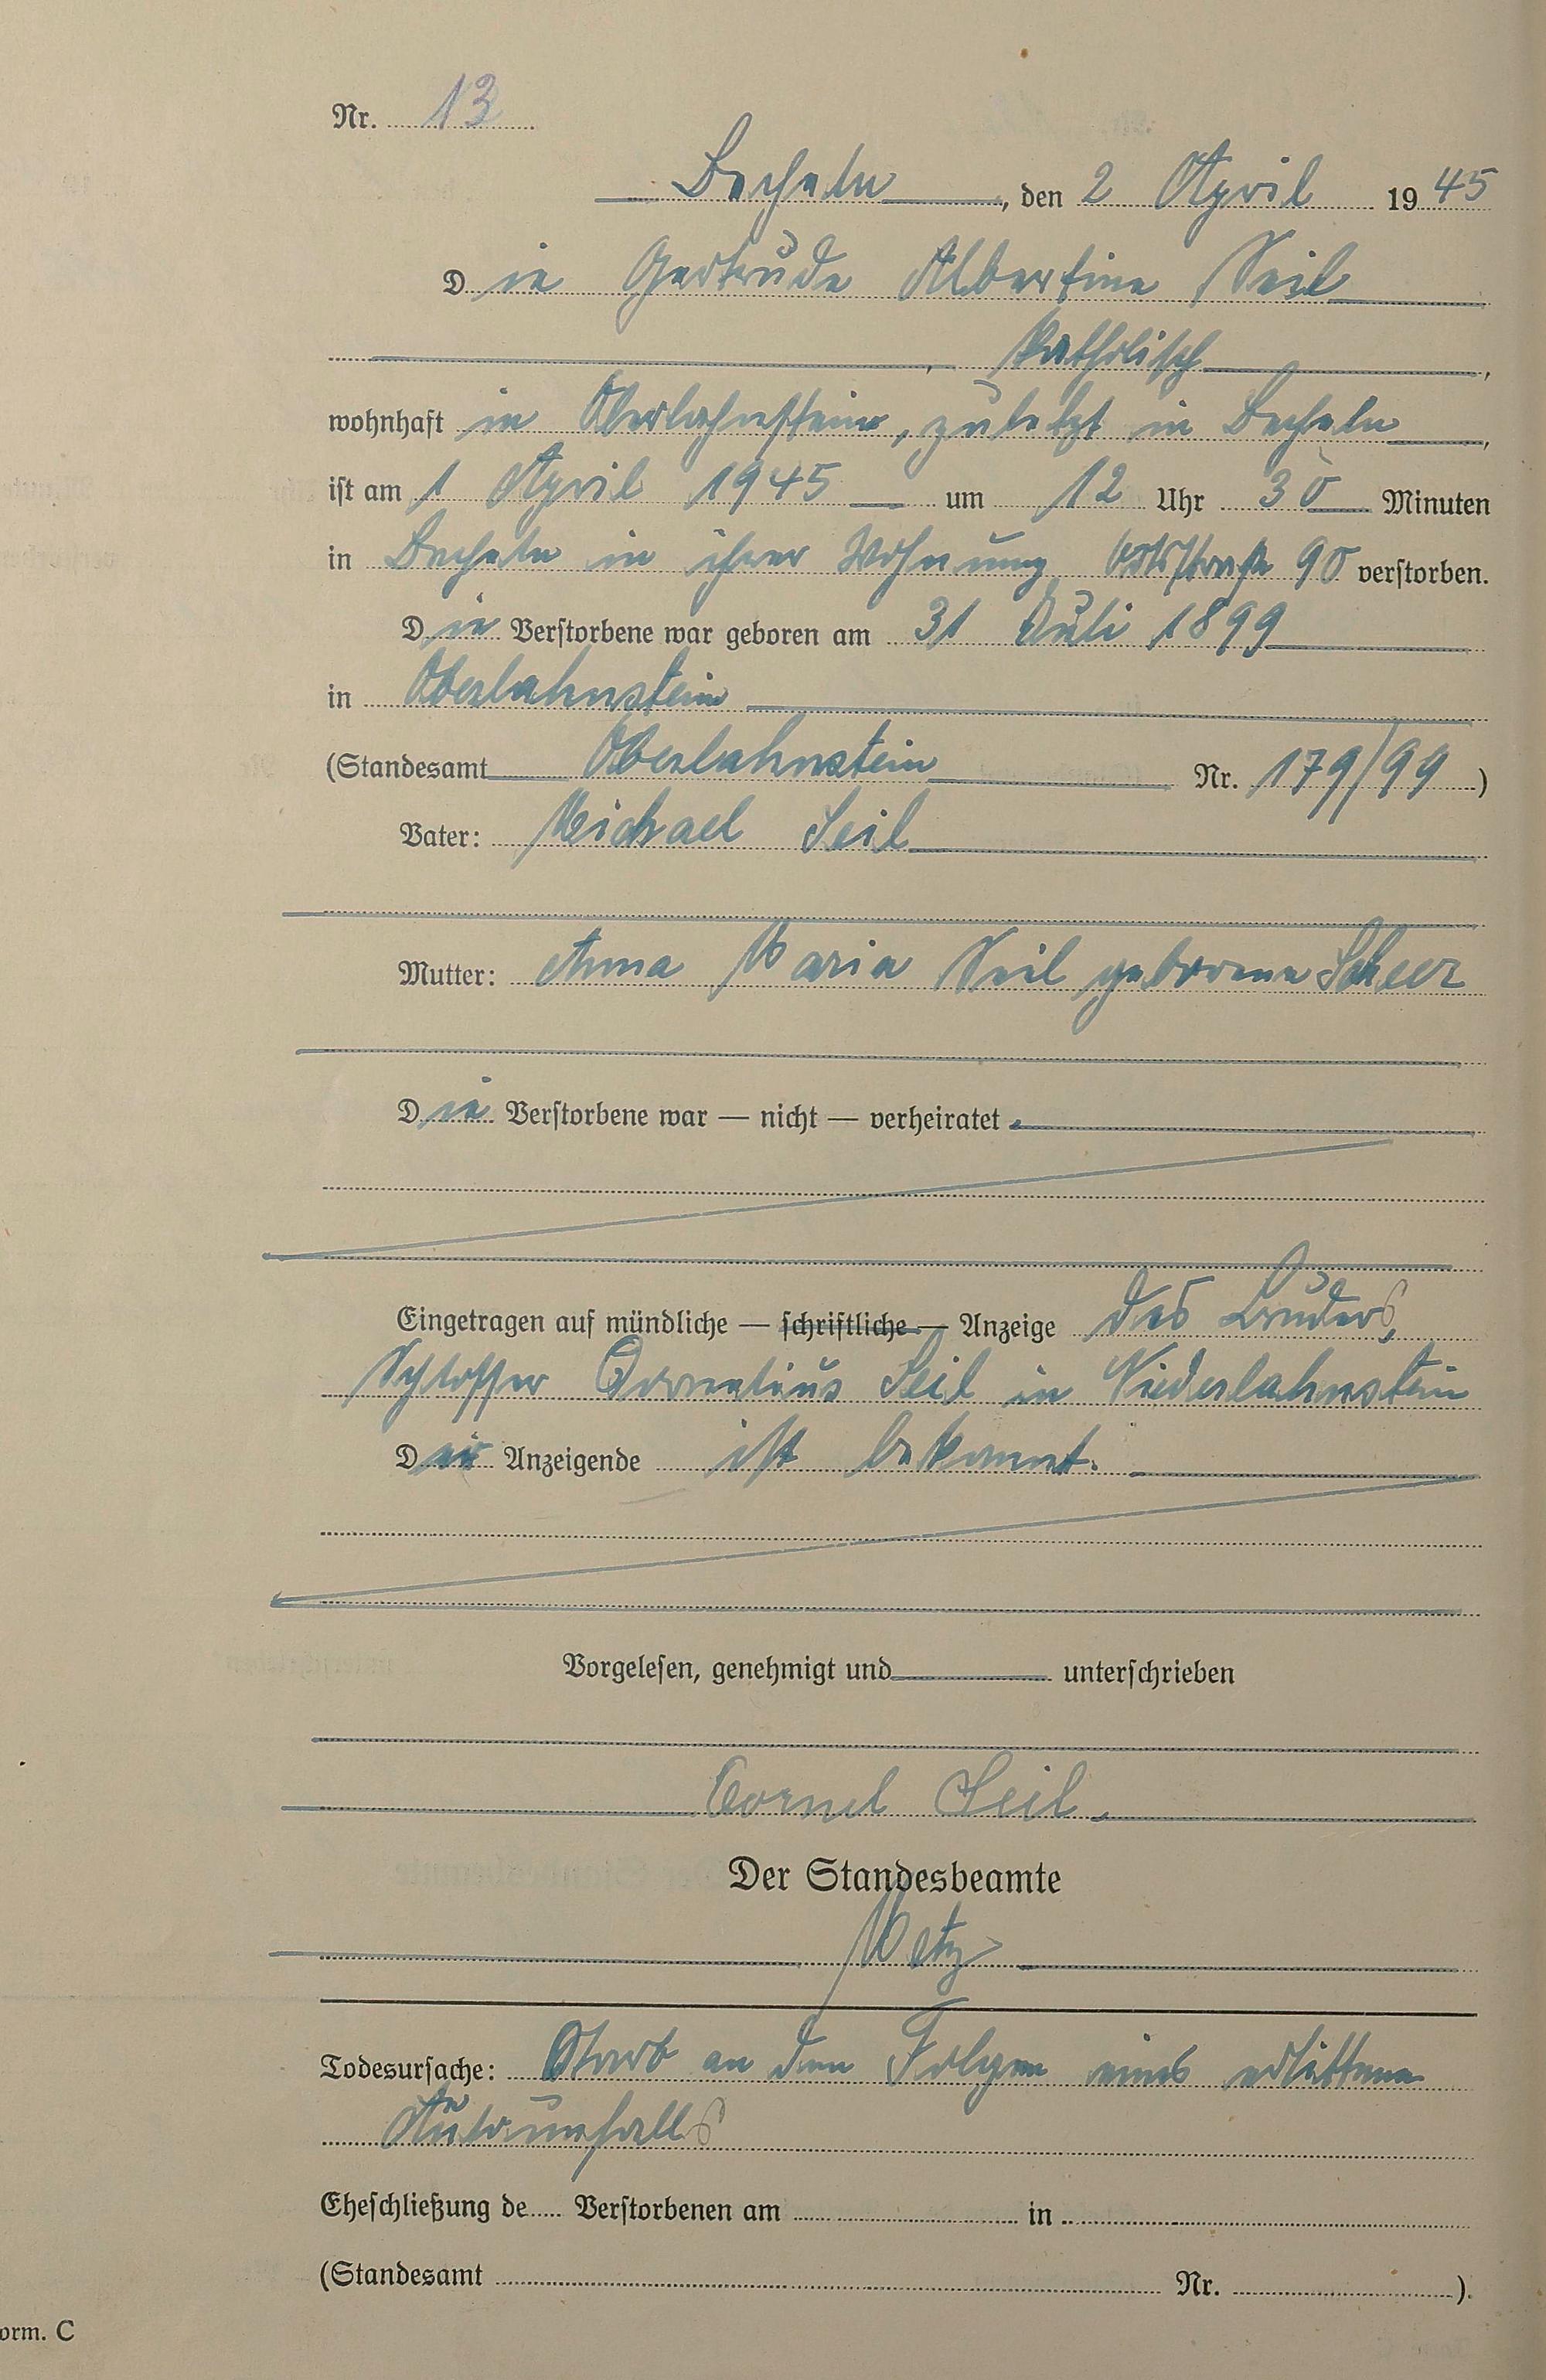 Nr. 13
Becheln, den 2 April 1945
Die Gertrude Albertine Seil
katholisch,
wohnhaft in Oberlahnstein, zuletzt in Becheln,
ist am 1 April 1945 um 12 Uhr 30 Minuten
in Becheln in ihrer Wohnung 90 verstorben.
Die Verstorbene war geboren am 31 Juli 1899
in Oberlahnstein
(Standesamt Oberlahnstein Nr. 179/99)
Vater: Michael Seil
Mutter: Anna Maria Seil geborene Scheer
Die Verstorbene war — nicht — verheiratet.
Eingetragen auf mündliche — schriftliche — Anzeige des Bruders,
Schlosser Cornelius Seil in Niederlahnstein
Der Anzeigende ist bekannt.
Vorgelesen, genehmigt und unterschrieben
Cornel Seil.
Der Standesbeamte
Metz
Todesursache: Starb an den Folgen eines erlittenen
Autounfalls
Eheschließung de Verstorbenen am in
(Standesamt Nr. ).
orm. C